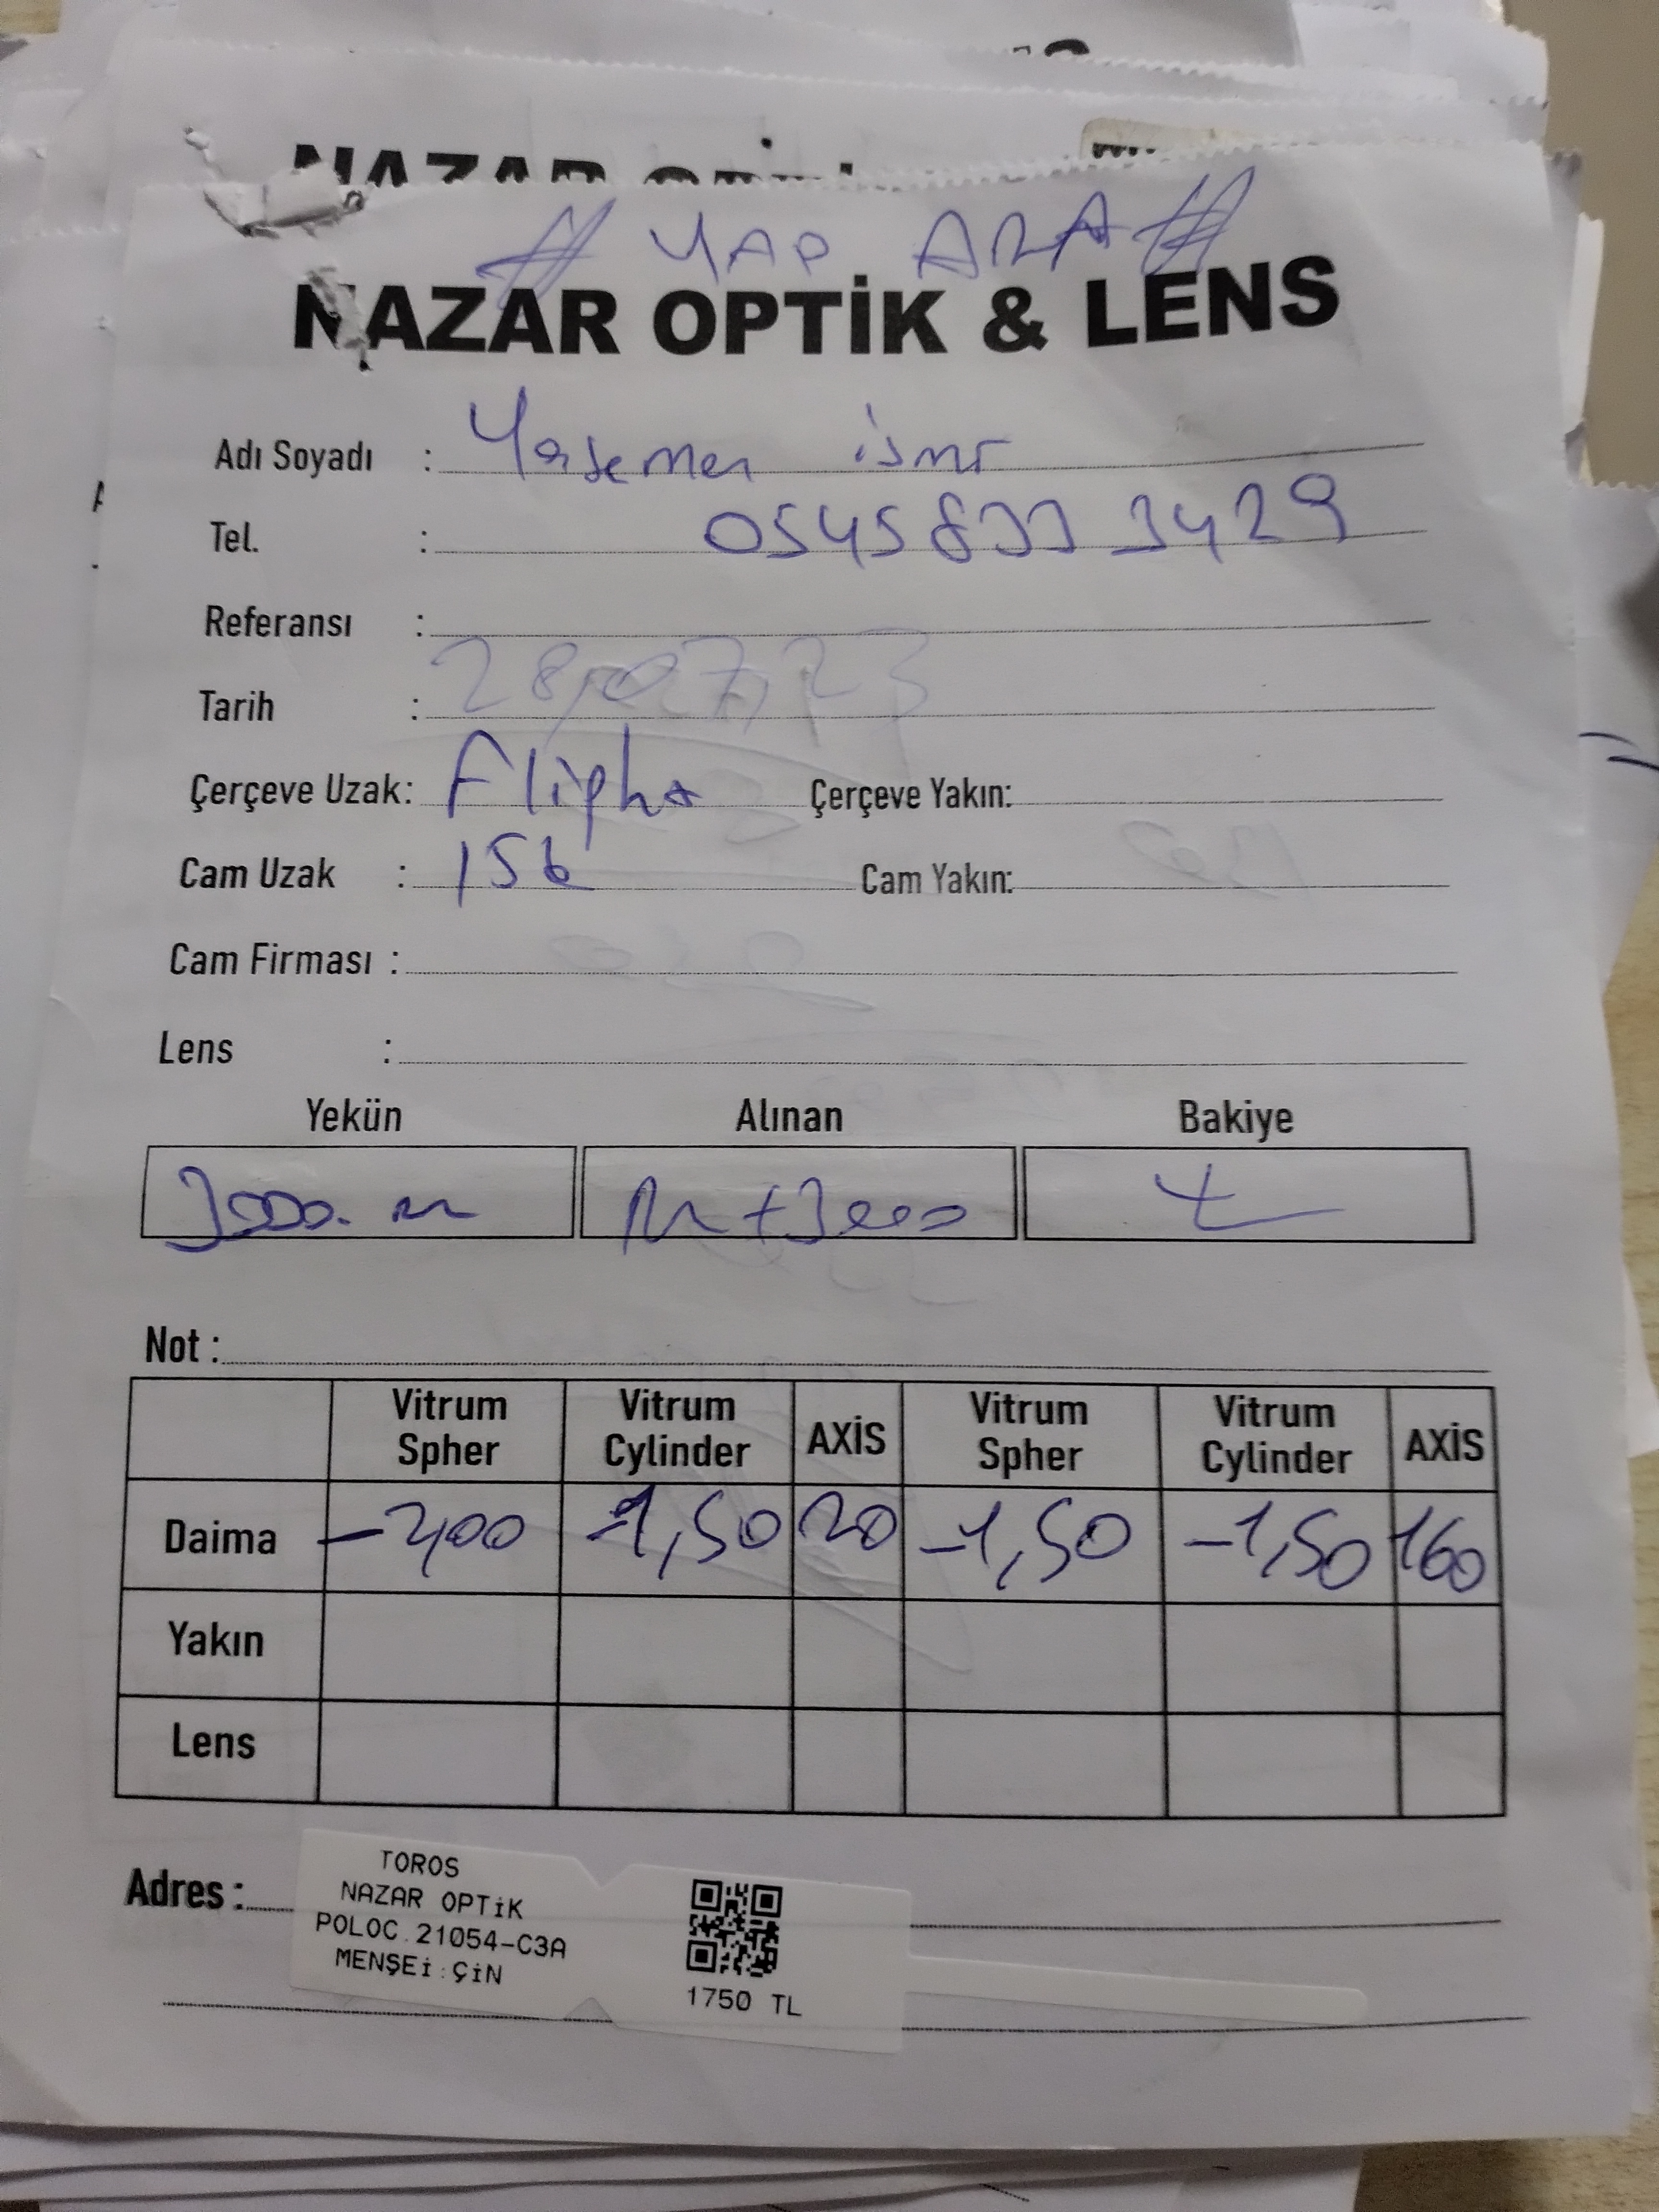 # YAP ARA #
NAZAR OPTİK & LENS
Adı Soyadı :
Tel. : 0545 833 3429
Referansı :
Tarih : 28,07,23
Çerçeve Uzak: Çerçeve Yakın:
Cam Uzak : 156 Cam Yakın:
Cam Firması :
Lens :
Yekün Alınan Bakiye
3000. +3000
Not :
Vitrum Spher Vitrum Cylinder AXİS Vitrum Spher Vitrum Cylinder AXİS
Daima -2,00 -1,50 20 -1,50 -1,50 160
Yakın
Lens
Adres :
TOROS
NAZAR OPTİK
POLOC.21054-C3A
MENŞEİ:ÇİN
1750 TL